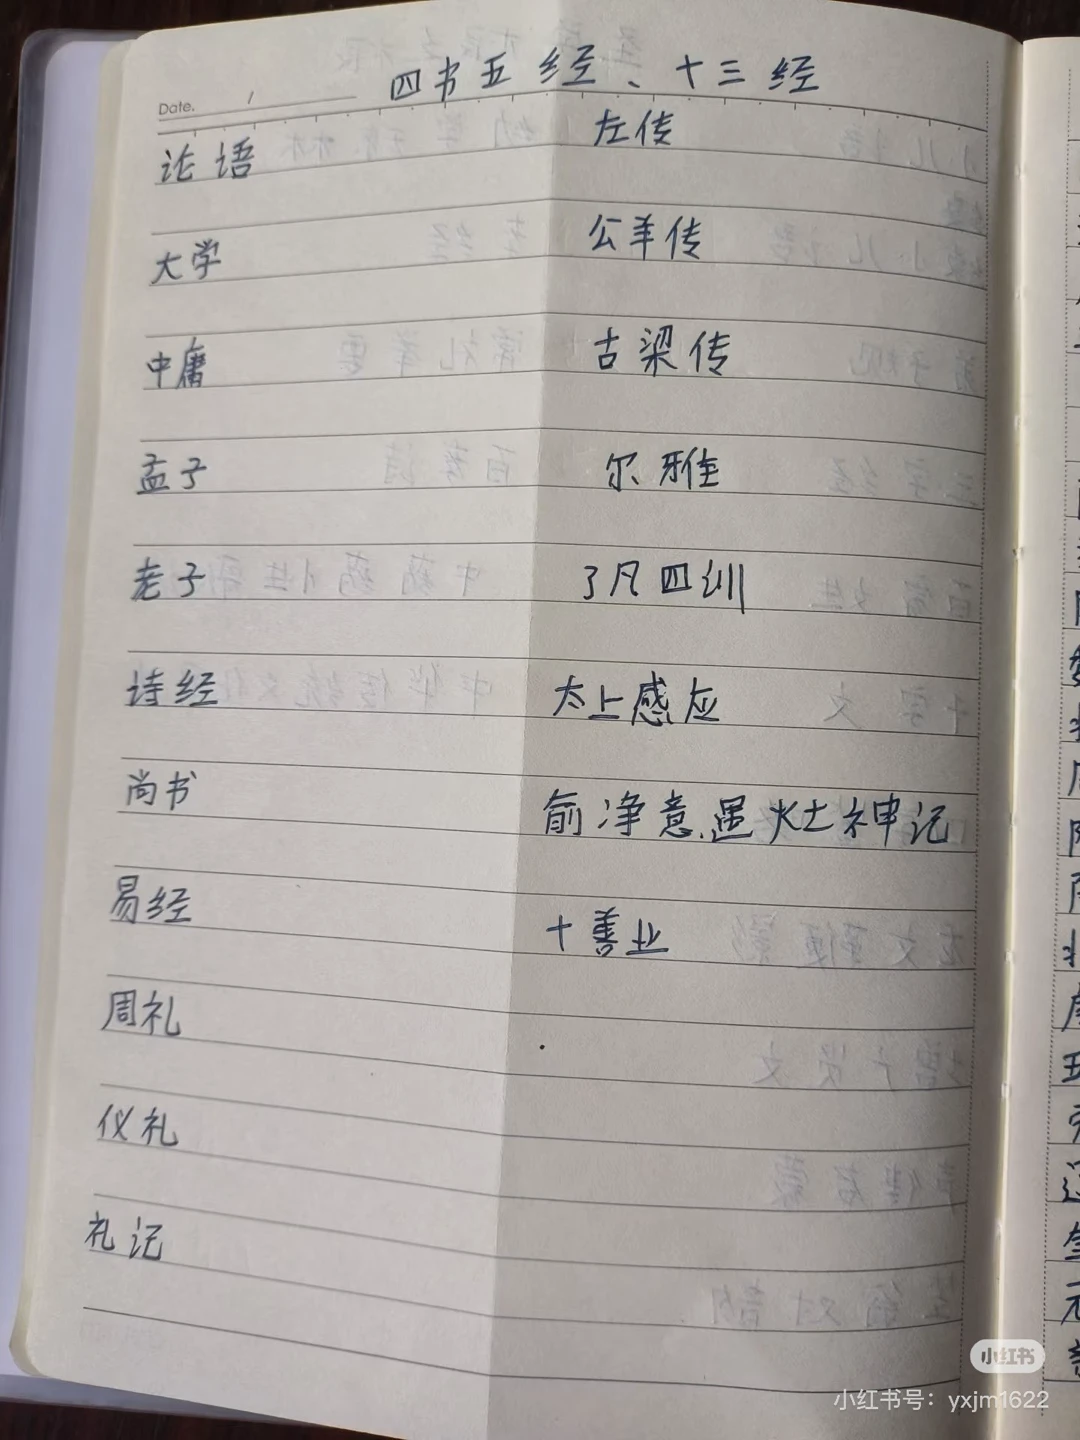 四书五经、十三经
Date. /
论语
大学
中庸
孟子
老子
诗经
尚书
易经
周礼
仪礼
礼记
左传
公羊传
古梁传
尔雅
了凡四训
太上感应
俞净意遇灶神记
十善业
小红书
小红书号：yxjm1622